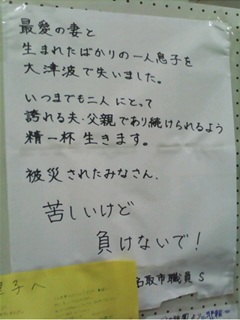 最愛の妻と
生まれたばかりの一人息子を
大津波で失いました。
いつまでも二人にとって
誇れる夫・父親であり続けられるよう
精一杯生きます。
被災されたみなさん、
苦しいけど
負けないで!
名取市職員 S